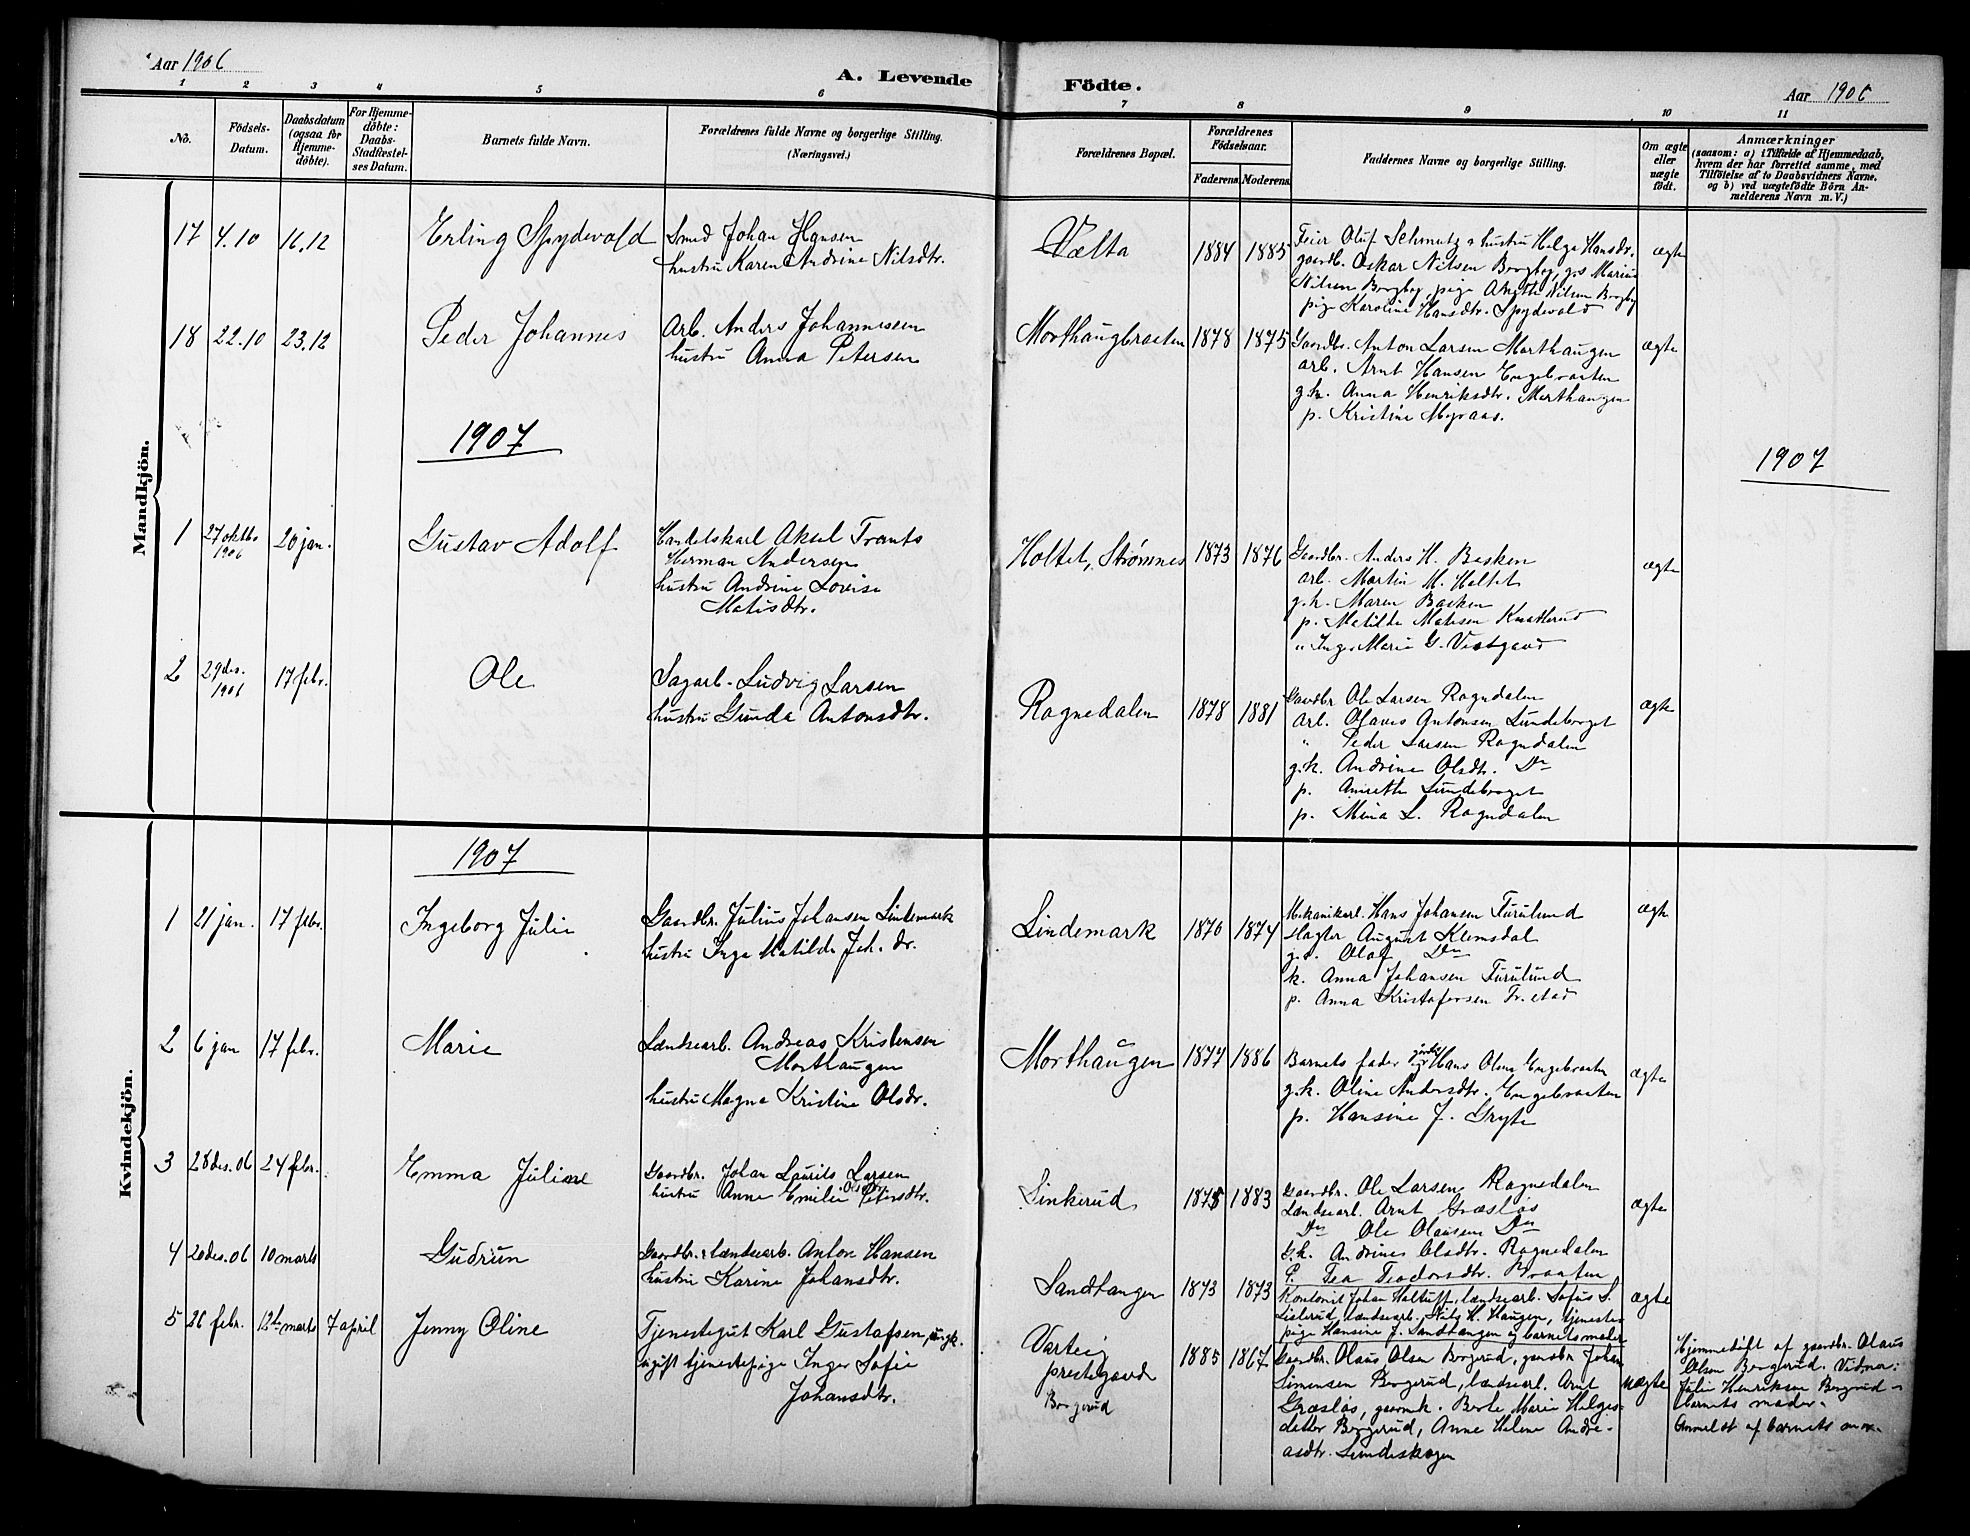 Aar 1906
A. Levende
Födte.
Aar 1906
1 2 3 4 5 6 7 8 9 10 11
No.
Födsels-
Datum.
Daabsdatum
(ogsaa for
Hjemme-
döbte).
For Hjemme-
döbte:
Daabs-
Stadfæstel-
ses Datum.
Barnets fulde Navn.
Forældrenes fulde Navne og borgerlige Stilling.
(Næringsvei.)
Forældrenes Bopæl.
Forældrenes
Födselsaar.
Faderens. Moderens.
Faddernes Navne og borgerlige Stilling.
Om ægte
eller
uægte
födt.
Anmærkninger
(saasom: a) i Tilfælde af Hjemmedaab,
hvem der har forrettet samme, med
Tilföielse af to Daabsvidners Navne,
og b) ved uægtefödte Börn An-
melderens Navn m. V.)
Mandkjön.
17 4.10 16.12
Erling Spydevold
Smed Johan Hansen
hustru Karen Andrine Nilsdtr.
Vælta
1884 1885
Feier Oluf Schmutz & hustru Helga Hansdr.
gaardb. Oskar Nilsen Borgby, gs Marius
Nilsen Borgby, pige Nilsen Borgby
pige Karoline Hansdtr. Spydevold
ægte
18 22.10 23.12
Peder Johannes
Arb. Anders Johannesen
hustru Anna Petersen
Morthaugbraaten
1878 1875
Gaardbr. Anton Larsen Morthaugen
arb. Arnt Hansen Engebraaten
g.k. Anna Henriksdtr. Morthaugen
p. Kristine Myraas.
ægte
1907
1907
1 27 oktbr 1906 20 jan.
Gustav Adolf
Handelskarl Aksel Frants
Herman Andersen
hustru Andrine Lovise
Matisdtr.
Holtet, Strømnes
1873 1876
Gaardbr. Anders H. Bakken
arb. Martin M. Holtet
g.k. Maren Bakken
p. Matilde Matisen Knatterud
" Inger Marie G. Vestgaard
ægte
2 29 des. 1906 17 febr.
Ole
Sagarb. Ludvig Larsen
hustru Gunda Antonsdtr.
Ragnedalen
1878 1881
Gaardbr Ole Larsen Ragndalen
arb. Olaves Antonsen Lundeborget
" Peder Larsen Ragndalen
g.k. Andrine Olsdtr. Do
p. Annette Lundeborget
p. Mina L. Ragndalen
ægte
Kvindekjön.
1907
1 21 jan. 17 febr.
Ingeborg Julie
Gaardbr. Julius Johansen Lindemark
hustru Inga Matilde Joh. dr.
Lindemark
1870 1874
Mekanikarb. Hans Johansen Furulund
slagter August Klemsdal
g.s. Olaf Do
k. Anna Johansen Furulund
p. Anna Kristofersen Fr.stad
ægte
2 6 jan 17 febr.
Marie
Lændsearb. Andreas Kristensen
Morthaugen
hustru Magna Kristine Olsdr.
Morthaugen
1877 1886
Barnets fader gaardbr Hans Olsen Engebraaten
g.k. Oline Andersdtr. Engebraaten
p. Hansine J. Gryte
ægte
3 28 des. 06 24 febr.
Emma Juliane
Gaardbr. Johan Laurits Larsen
hustru Anne Emilie Petersdtr.
Linkerud
1875 1883
Gaardbr. Ole Larsen Ragnedalen
Lændsearb. Arnt Græsløs
Do Ole Olausen Do
G.k. Andrine Olsdtr. Ragnedalen
P. Tea Teodorsdtr. Braaten
ægte
4 20 des. 06 10 marts
Gudrun
Gaardbr. & lændsearb. Anton Hansen
hustru Karine Johansdtr.
Sandtangen
1873 1873
Kontorist Johan Holtuff, lændsearb. Sofus S.
Lislerud, lændsearb. Nils H. Haugen, tjeneste-
pige Hansine J. Sandtangen og barnets moder
ægte
5 26 febr. 12te marts 7 april
Jenny Oline
Tjenestegut Karl Gustafsen, ungk.
ugift tjenestepige Inger Sofie
Johansdtr.
Varteig
prestegaard
Borgerud
1885 1867
Gaardbr. Olaus Olsen Borgerud, gaardbr Johan
Simensen Borgerud, lændsearb. Arnt
Græsløs, gaardmk. Berte Marie Helges-
datter Borgerud, Anne Helene Andre-
asdtr. Lundeskogen
uægte
Hjemmedøpt af gaardbr. Olaus
Olsen Borgerud. Vidner:
Julie Henriksen Borgerud &
barnets moder.
Anmeldt af barnets